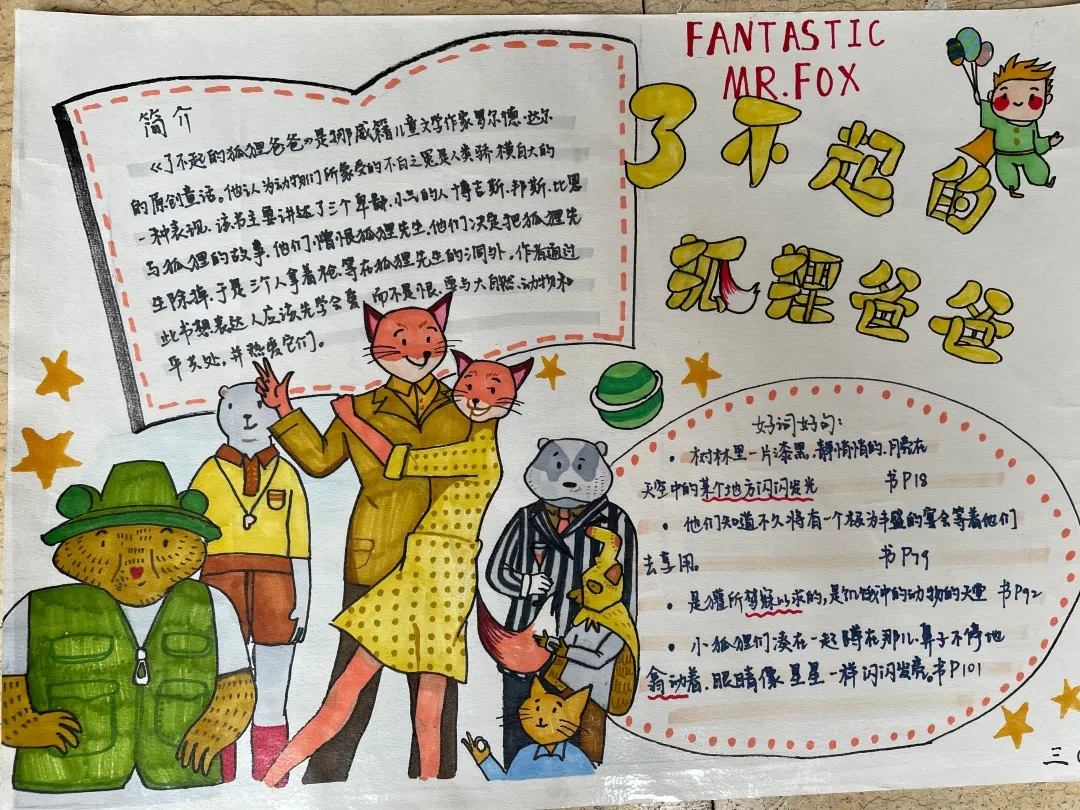 FANTASTIC
MR.FOX
了不起的
狐狸爸爸
简介
《了不起的狐狸爸爸》是挪威籍儿童文学作家罗尔德·达尔
的原创童话。他认为动物们所蒙受的不白之冤是人类骄横自大的
一种表现。该书主要讲述了三个卑鄙、小气的人博吉斯、邦斯、比恩
与狐狸的故事,他们憎恨狐狸先生,他们决定把狐狸先
生除掉,于是三个人拿着枪,等在狐狸先生的洞外。作者通过
此书想表达人应该先学会爱,而不是恨,要与大自然、动物和
平共处,并热爱它们。
好词好句:
• 树林里一片漆黑,静悄悄的,月亮在
天空中的某个地方闪闪发光 书P18
• 他们知道不久将有一个极为丰盛的宴会等着他们
去享用。 书P79
• 是獾所梦寐以求的,是饥饿中的动物的天堂 书P92
• 小狐狸们凑在一起蹲在那儿,鼻子不停地
翕动着,眼睛像星星一样闪闪发亮。书P101
三(